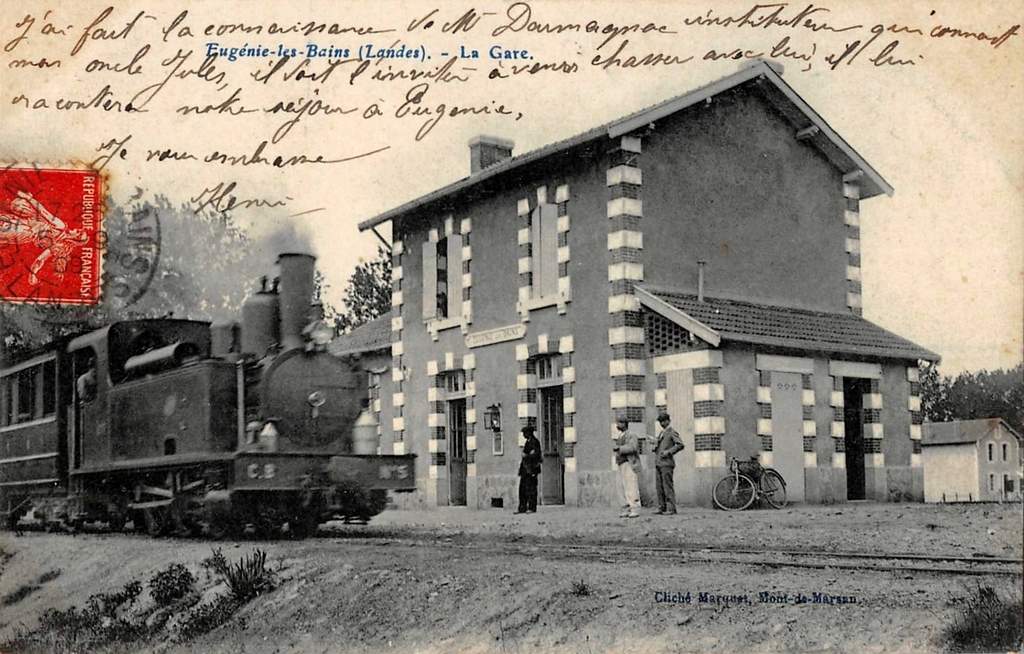 j'ai fait la connaissance de Mr Darmagnac instituteur qui connait
Eugénie-les-Bains (Landes). - La Gare.
mon oncle Jules, il doit l'inviter à venir chasser avec lui, il lui
racontera notre séjour à Eugenie,
Je vous embrasse
Henri
REPUBLIQUE FRANÇAISE
EUGENIE LES BAINS
C.B N°5
Cliché Marquet, Mont-de-Marsan.